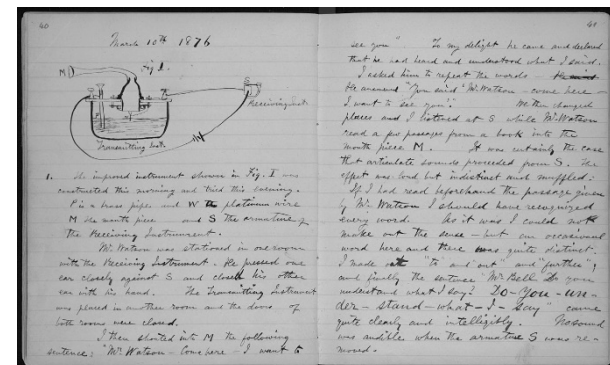 40
March 10th 1876
Fig 1.
M
S
Receiving Inst.
Transmitting Inst.
1. The improved instrument shown in Fig. I was
constructed this morning and tried this evening.
P is a brass pipe and W the platinum wire
M the mouth piece and S the armature of
the Receiving Instrument.
Mr. Watson was stationed in one room
with the Receiving Instrument. He pressed one
ear closely against S and closed his other
ear with his hand. The Transmitting Instrument
was placed in another room and the doors of
both rooms were closed.
I then shouted into M the following
sentence: "Mr. Watson - Come here - I want to
41
see you" To my delight he came and declared
that he had heard and understood what I said.
I asked him to repeat the words -
He answered "You said 'Mr. Watson - come here -
I want to see you'." We then changed
places and I listened at S while Mr. Watson
read a few passages from a book into the
mouth piece M. It was certainly the case
that articulate sounds proceeded from S. The
effect was loud but indistinct and muffled.
If I had read beforehand the passage given
by Mr. Watson I should have recognized
every word. As it was I could not
make out the sense - but an occasional
word here and there was quite distinct.
I made out "to" and "out" and "further";
and finally the sentence "Mr. Bell Do you
understand what I say? Do-you-un-
der-stand-what-I-say" came
quite clearly and intelligibly. No sound
was audible when the armature S was re-
moved.